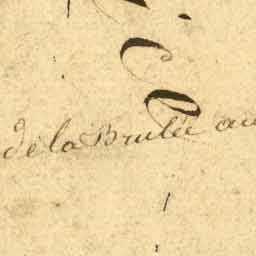 de la Brulée au